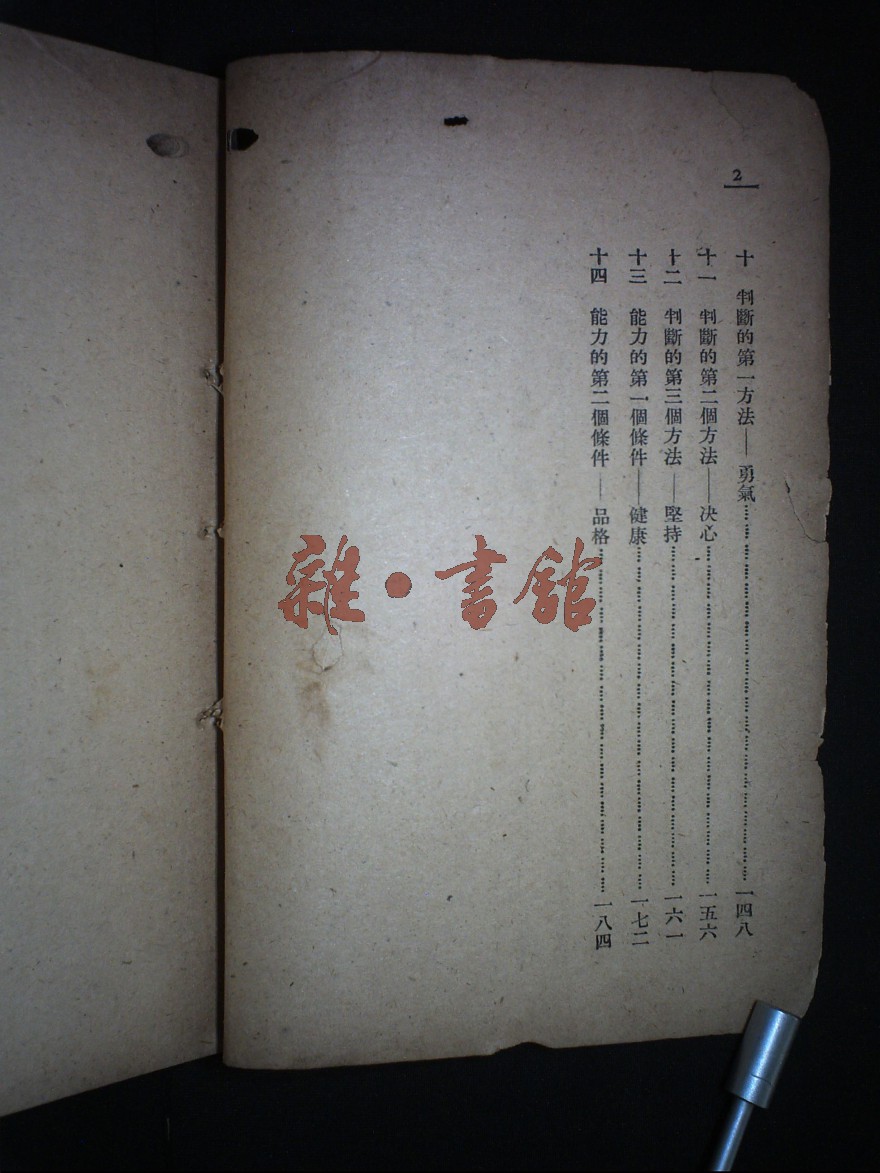 2
十　判斷的第一方法——勇氣……一四八
十一　判斷的第二個方法——决心……一五六
十二　判斷的第三個方法——堅持……一六一
十三　能力的第一個條件——健康……一七二
十四　能力的第二個條件——品格……一八四
雜·書館